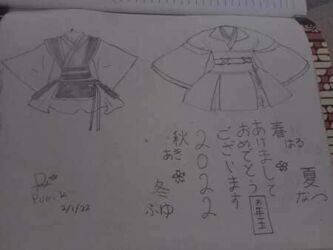 春
はる
夏
なつ
あけまして
おめでとう
ございます
お年玉
2022
秋
あき
冬
ふゆ
2/1/22